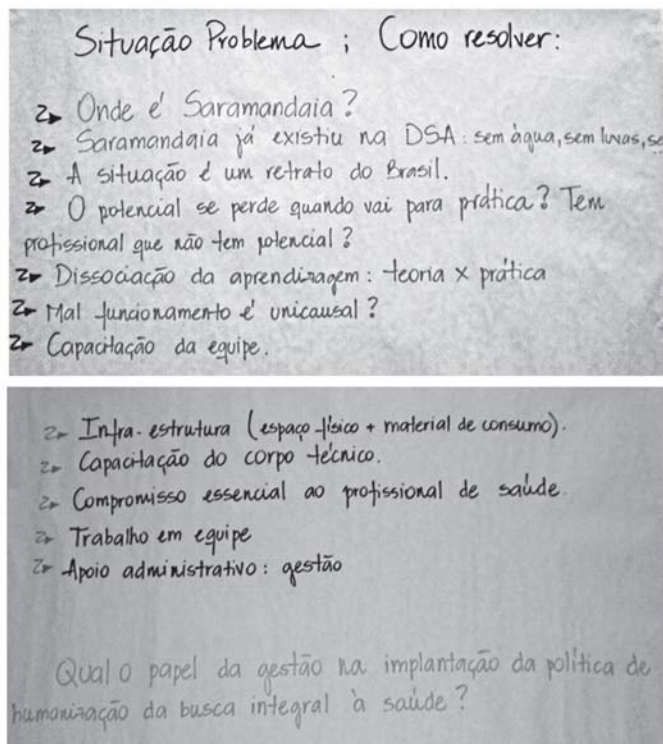 Situação Problema ; Como resolver:
Onde é Saramandaia?
Saramandaia já existiu na DSA: sem água, sem luvas, se
A situação é um retrato do Brasil.
O potencial se perde quando vai para prática? Tem
profissional que não tem potencial?
Dissociação da aprendizagem: teoria x prática
Mal funcionamento é unicausal?
Capacitação da equipe.
Infra-estrutura (espaço físico + material de consumo).
Capacitação do corpo técnico.
Compromisso essencial ao profissional de saúde.
Trabalho em equipe
Apoio administrativo: gestão
Qual o papel da gestão na implantação da política de
humanização da busca integral à saúde?